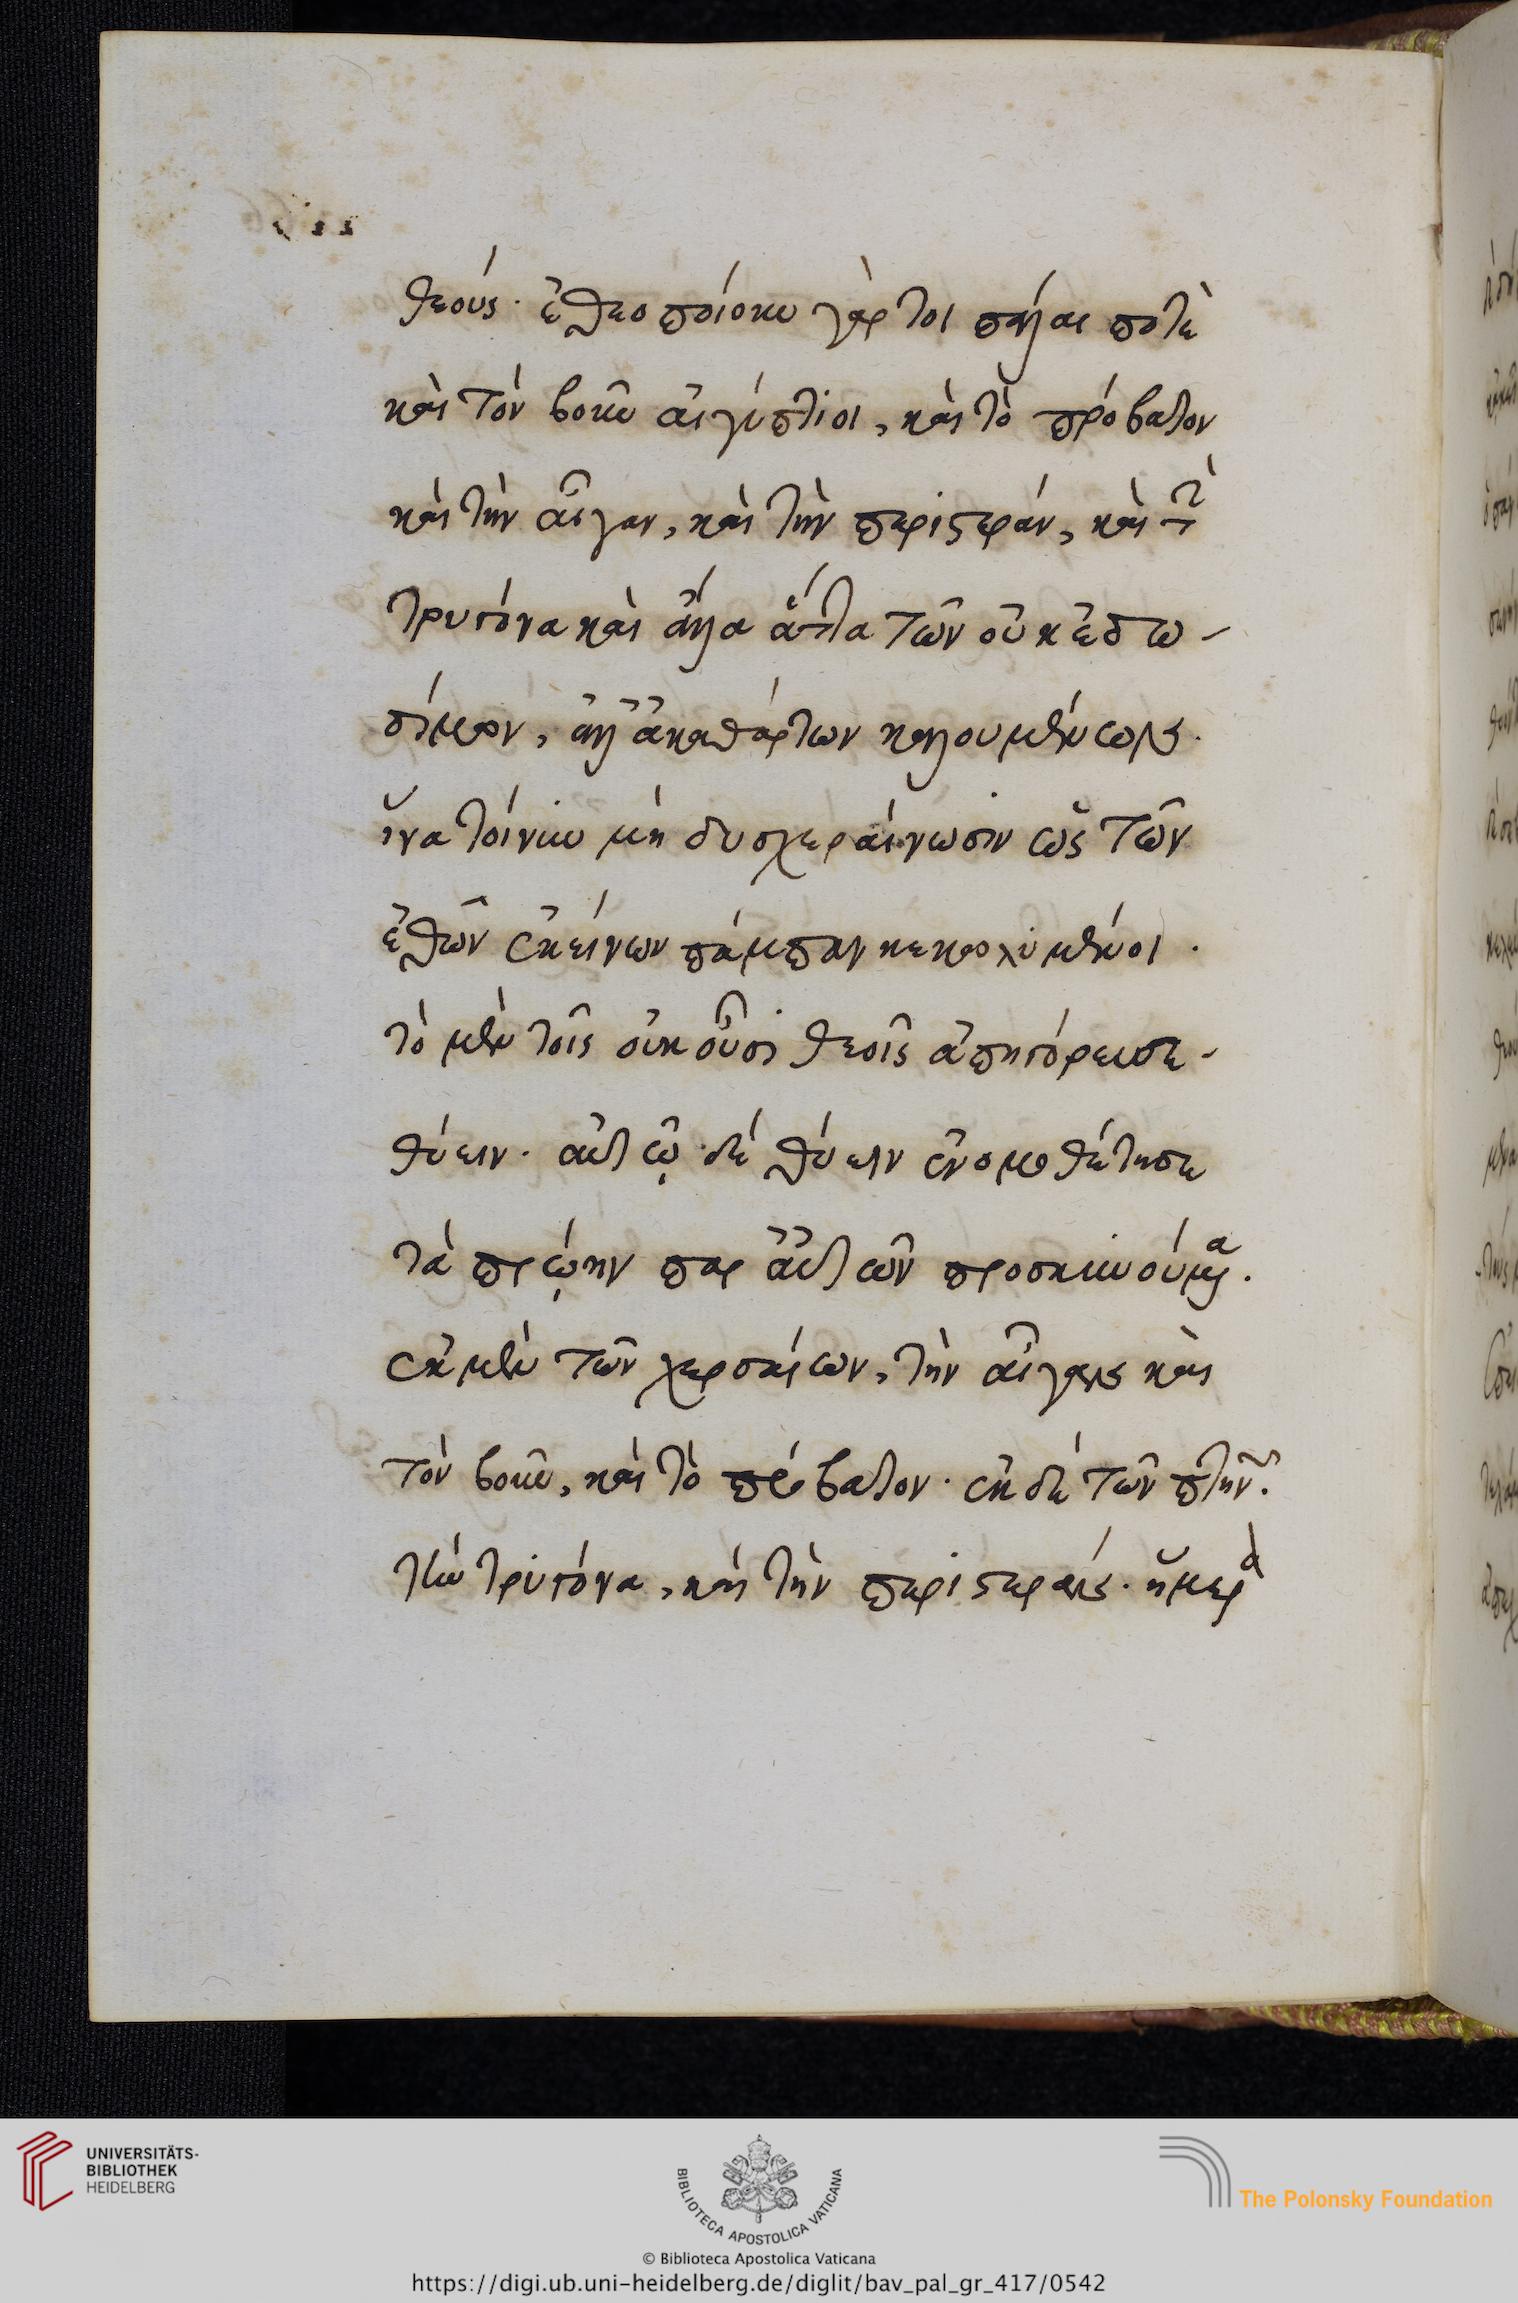 θεούς· ἐθεοποίουν γάρ τοι πάλαι ποτὲ
καὶ τὸν βοῦν αἰγύπτιοι, καὶ τὸ πρόβατον
καὶ τὴν αἶγαν, καὶ τὴν περιστεράν, καὶ τὴν
τρυγόνα καὶ ἄλλα ἄττα τῶν οὐκ ἐδω-
δίμων, ἀλλ' ἀκαθάρτων καλουμένων.
ἵνα τοίνυν μὴ δυσχεραίνωσιν ὡς τῶν
ἐθῶν ἐκείνων πάμπαν κεκωλυμένοι·
τὸ μὲν τοῖς οὐκ οὖσι θεοῖς ἀπηγόρευσε
θύειν. αὐτῷ δὲ θύειν ἐνομοθέτησε
τὰ πρώην παρ αὐτῶν προσκυνούμενα.
ἐκ μὲν τῶν χερσαίων, τὴν αἶγαν καὶ
τὸν βοῦν, καὶ τὸ πρόβατον· ἐκ δὲ τῶν πτηνῶν.
τὴν τρυγόνα, καὶ τὴν περιστεράν. ἥμερα
UNIVERSITÄTS-
BIBLIOTHEK
HEIDELBERG
BIBLIOTECA APOSTOLICA VATICANA
The Polonsky Foundation
© Biblioteca Apostolica Vaticana
https://digi.ub.uni-heidelberg.de/diglit/bav_pal_gr_417/0542